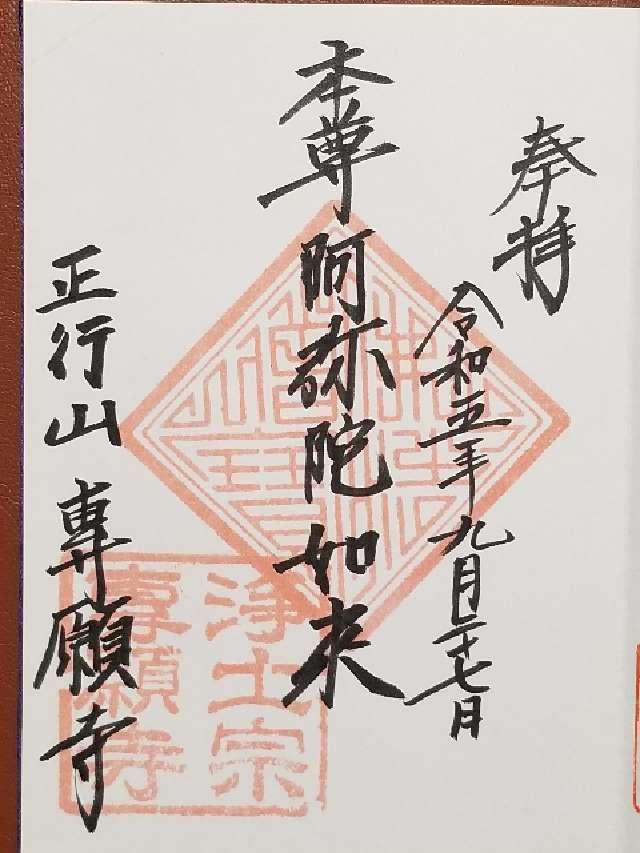 奉拝
令和五年九月二十七日
本尊 阿弥陀如来
正行山 専願寺
佛法僧寶
浄土宗
専願寺